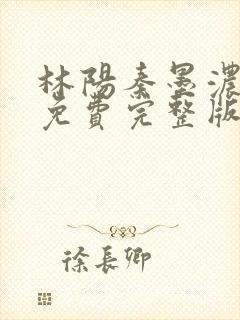 林陽秦墨濃
免費完整版
徐長卿